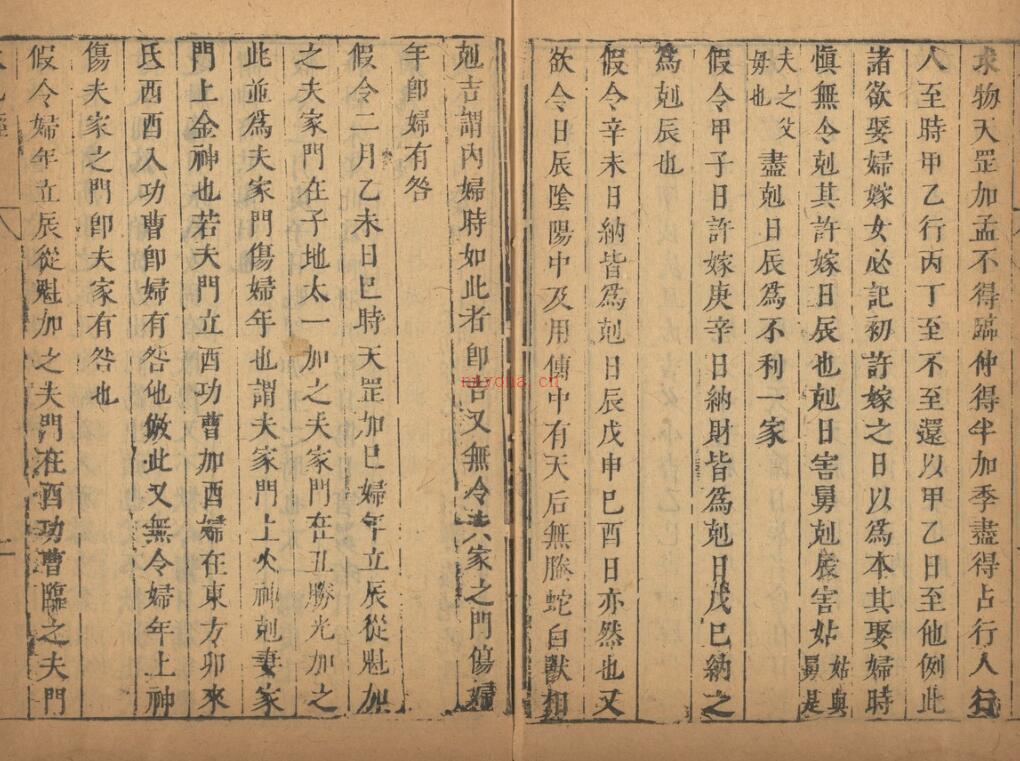 求物天罡加孟不得臨仲得半加季盡得占行人行
人至時甲乙行丙丁至不至還以甲乙日至他例此
諸欲娶婦嫁女必記初許嫁之日以為本其娶婦時
慎無令剋其許嫁日辰也剋日害舅剋辰害姑姑與舅是
夫之父毋也盡剋日辰為不利一家
假令甲子日許嫁庚辛日納財皆為剋日戊巳納之
為剋辰也
假令辛未日納皆為剋日辰戊申巳酉日亦然也又
欲令日辰陰陽中及用傳中有天后無螣蛇白獸相
剋吉謂內婦時如此者即吉又無令夫家之門傷婦
年即婦有咎
假令二月乙未日巳時天罡加巳婦年立辰從魁加
之夫家門在子地太一加之夫家門在丑勝光加之
此並為夫家門傷婦年也謂夫家門上火神剋妻家
門上金神也若夫門立酉功曹加酉婦在東方卯來
氐酉酉入功曹即婦有咎他倣此又無令婦年上神
傷夫家之門即夫家有咎也
假令婦年立辰從魁加之夫門在酉功曹臨之夫門
miyona.cn